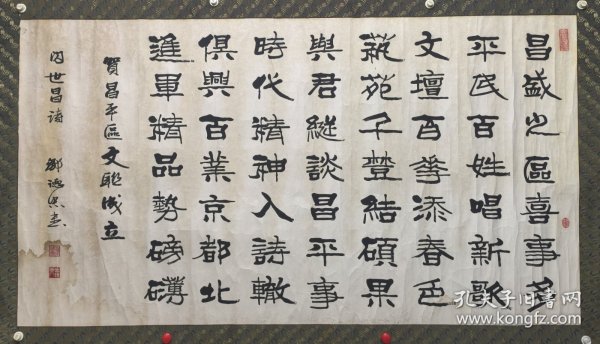 昌盛之區喜事多
平民百姓唱新歌
文壇百華添春色
蓺苑千登結碩果
與君縱談昌平事
時代精神入詩轍
俱興百業京都北
進軍精品勢磅礴
賀昌平區文聯成立
世昌詩 鄒德忠書
孔夫子旧书网
www.kongfz.com